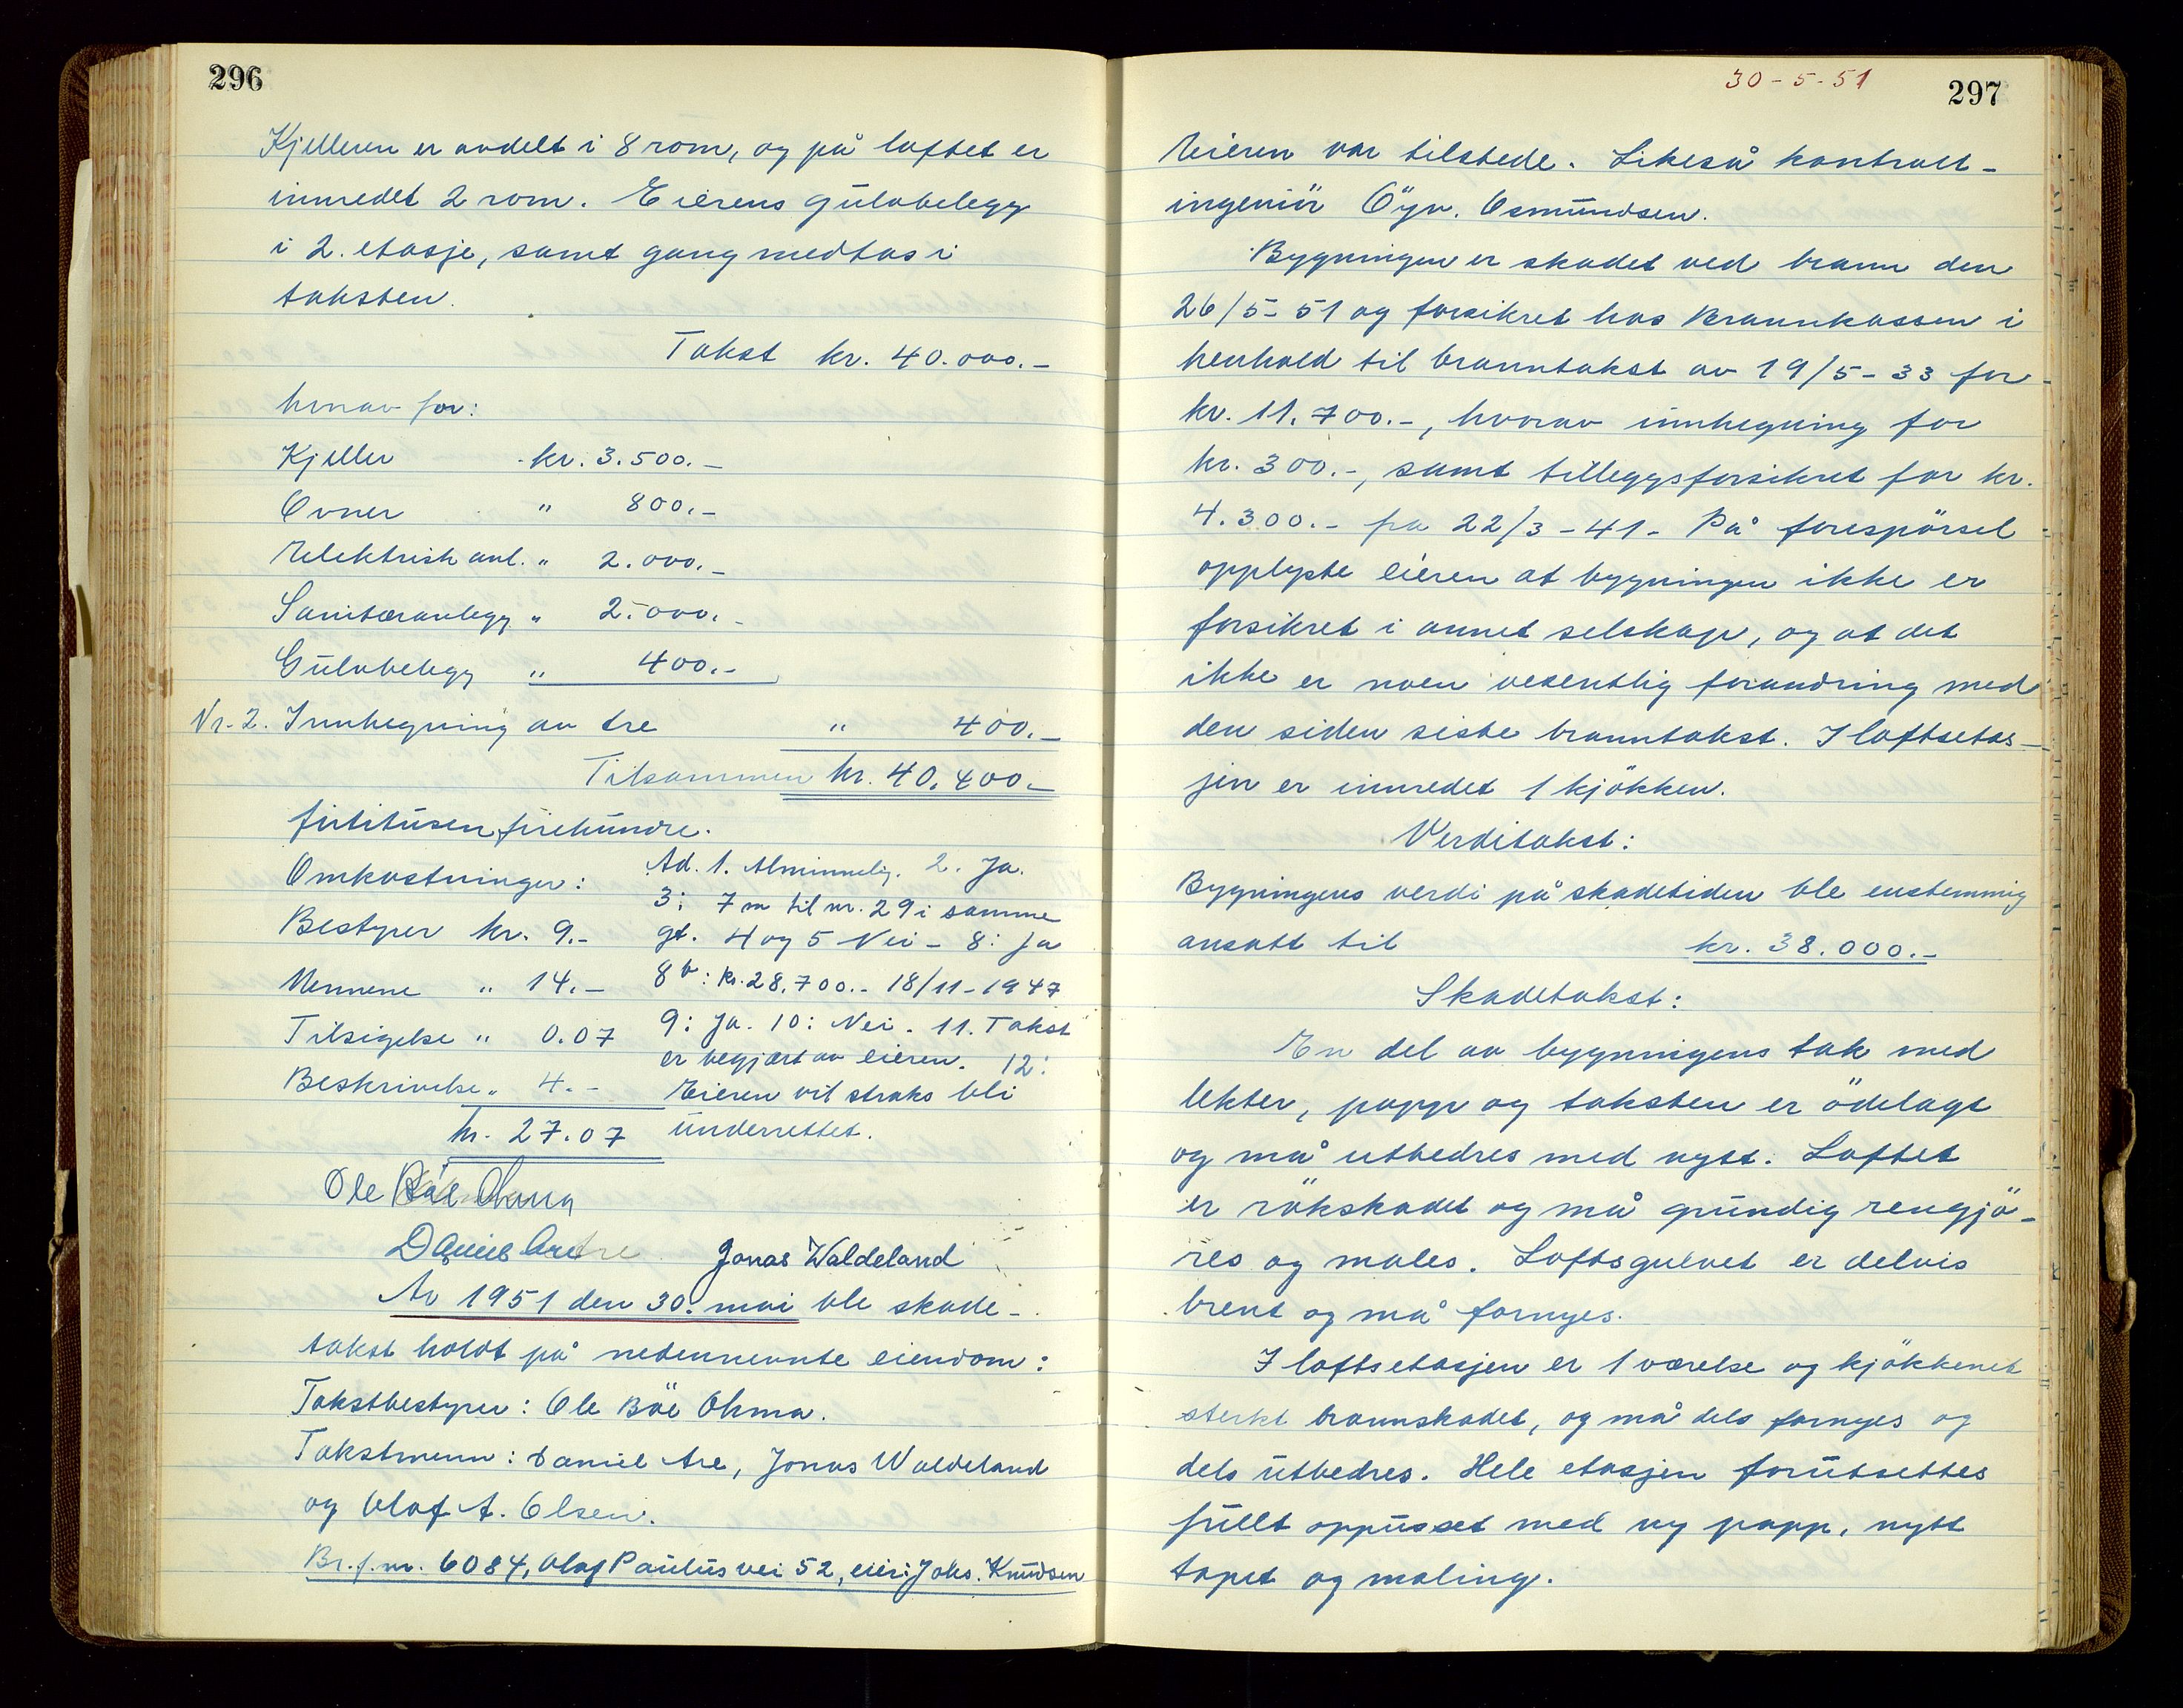 296
Kjelleren er avdelt i 8 rom, og på loftet er
innredet 2 rom. Eierens gulvbelegg
i 2. etasje, samt gang medtas i
taksten.
Takst kr. 40.000.-
hvorav for:
Kjeller kr. 3.500.-
Ovner " 800.-
Elektrisk anl. " 2.000.-
Sanitæranlegg " 2.000.-
Gulvbelegg " 400.-
Nr. 2. Innhegning av tre " 400.-
Tilsammen kr. 40.400.-
førtitusenfirehundre.
Omkostninger:
Bestyrer kr. 9.-
Mennene " 14.-
Tilsigelse " 0.07
Beskrivelse " 4.-
kr. 27.07
Ad. 1. Alminnelig. 2. Ja.
3: 7 m til nr. 29 i samme
gt. 4 og 5 Nei - 8: Ja
8b: kr. 28.700.- 18/11-1947
9: Ja. 10: Nei. 11. Takst
er begjært av eieren. 12:
Eieren vil straks bli
underrettet.
Ole Böe Ohma
Daniel Are Jonas Waldeland
År 1951 den 30. mai ble skade-
takst holdt på nedennevnte eiendom:
Takstbestyrer: Ole Böe Ohma.
Takstmenn: Daniel Are, Jonas Waldeland
og Olaf A. Olsen.
Br.f.nr. 6084, Olaf Paulus vei 52, eier: Johs. Knudsen
30-5-51
297
Eieren var tilstede. Likeså kontroll-
ingeniör Öyv. Osmundsen.
Bygningen er skadet ved brann den
26/5-51 og forsikret hos Brannkassen i
henhold til branntakst av 19/5-33 for
kr. 11.700.-, hvorav innhegning for
kr. 300.-, samt tilleggsforsikret for kr.
4.300.- fra 22/3-41- På forespörsel
opplyste eieren at bygningen ikke er
forsikret i annet selskap, og at det
ikke er noen vesentlig forandring med
den siden siste branntakst. I loftsetas-
jen er innredet 1 kjökken.
Verditakst:
Bygningens verdi på skadetiden ble enstemmig
ansatt til kr. 38.000.-
Skadetakst:
En del av bygningens tak med
lekter, papp og taksten er ödelagt
og må utbedres med nytt. Loftet
er rökskadet og må grundig rengjö-
res og males. Loftsgulvet er delvis
brent og må fornyes.
I loftsetasjen er 1 værelse og kjökkenet
sterkt brannskadet, og må dels fornyes og
dels utbedres. Hele etasjen forutsettes
fullt oppusset med ny papp, nytt
tapet og maling.